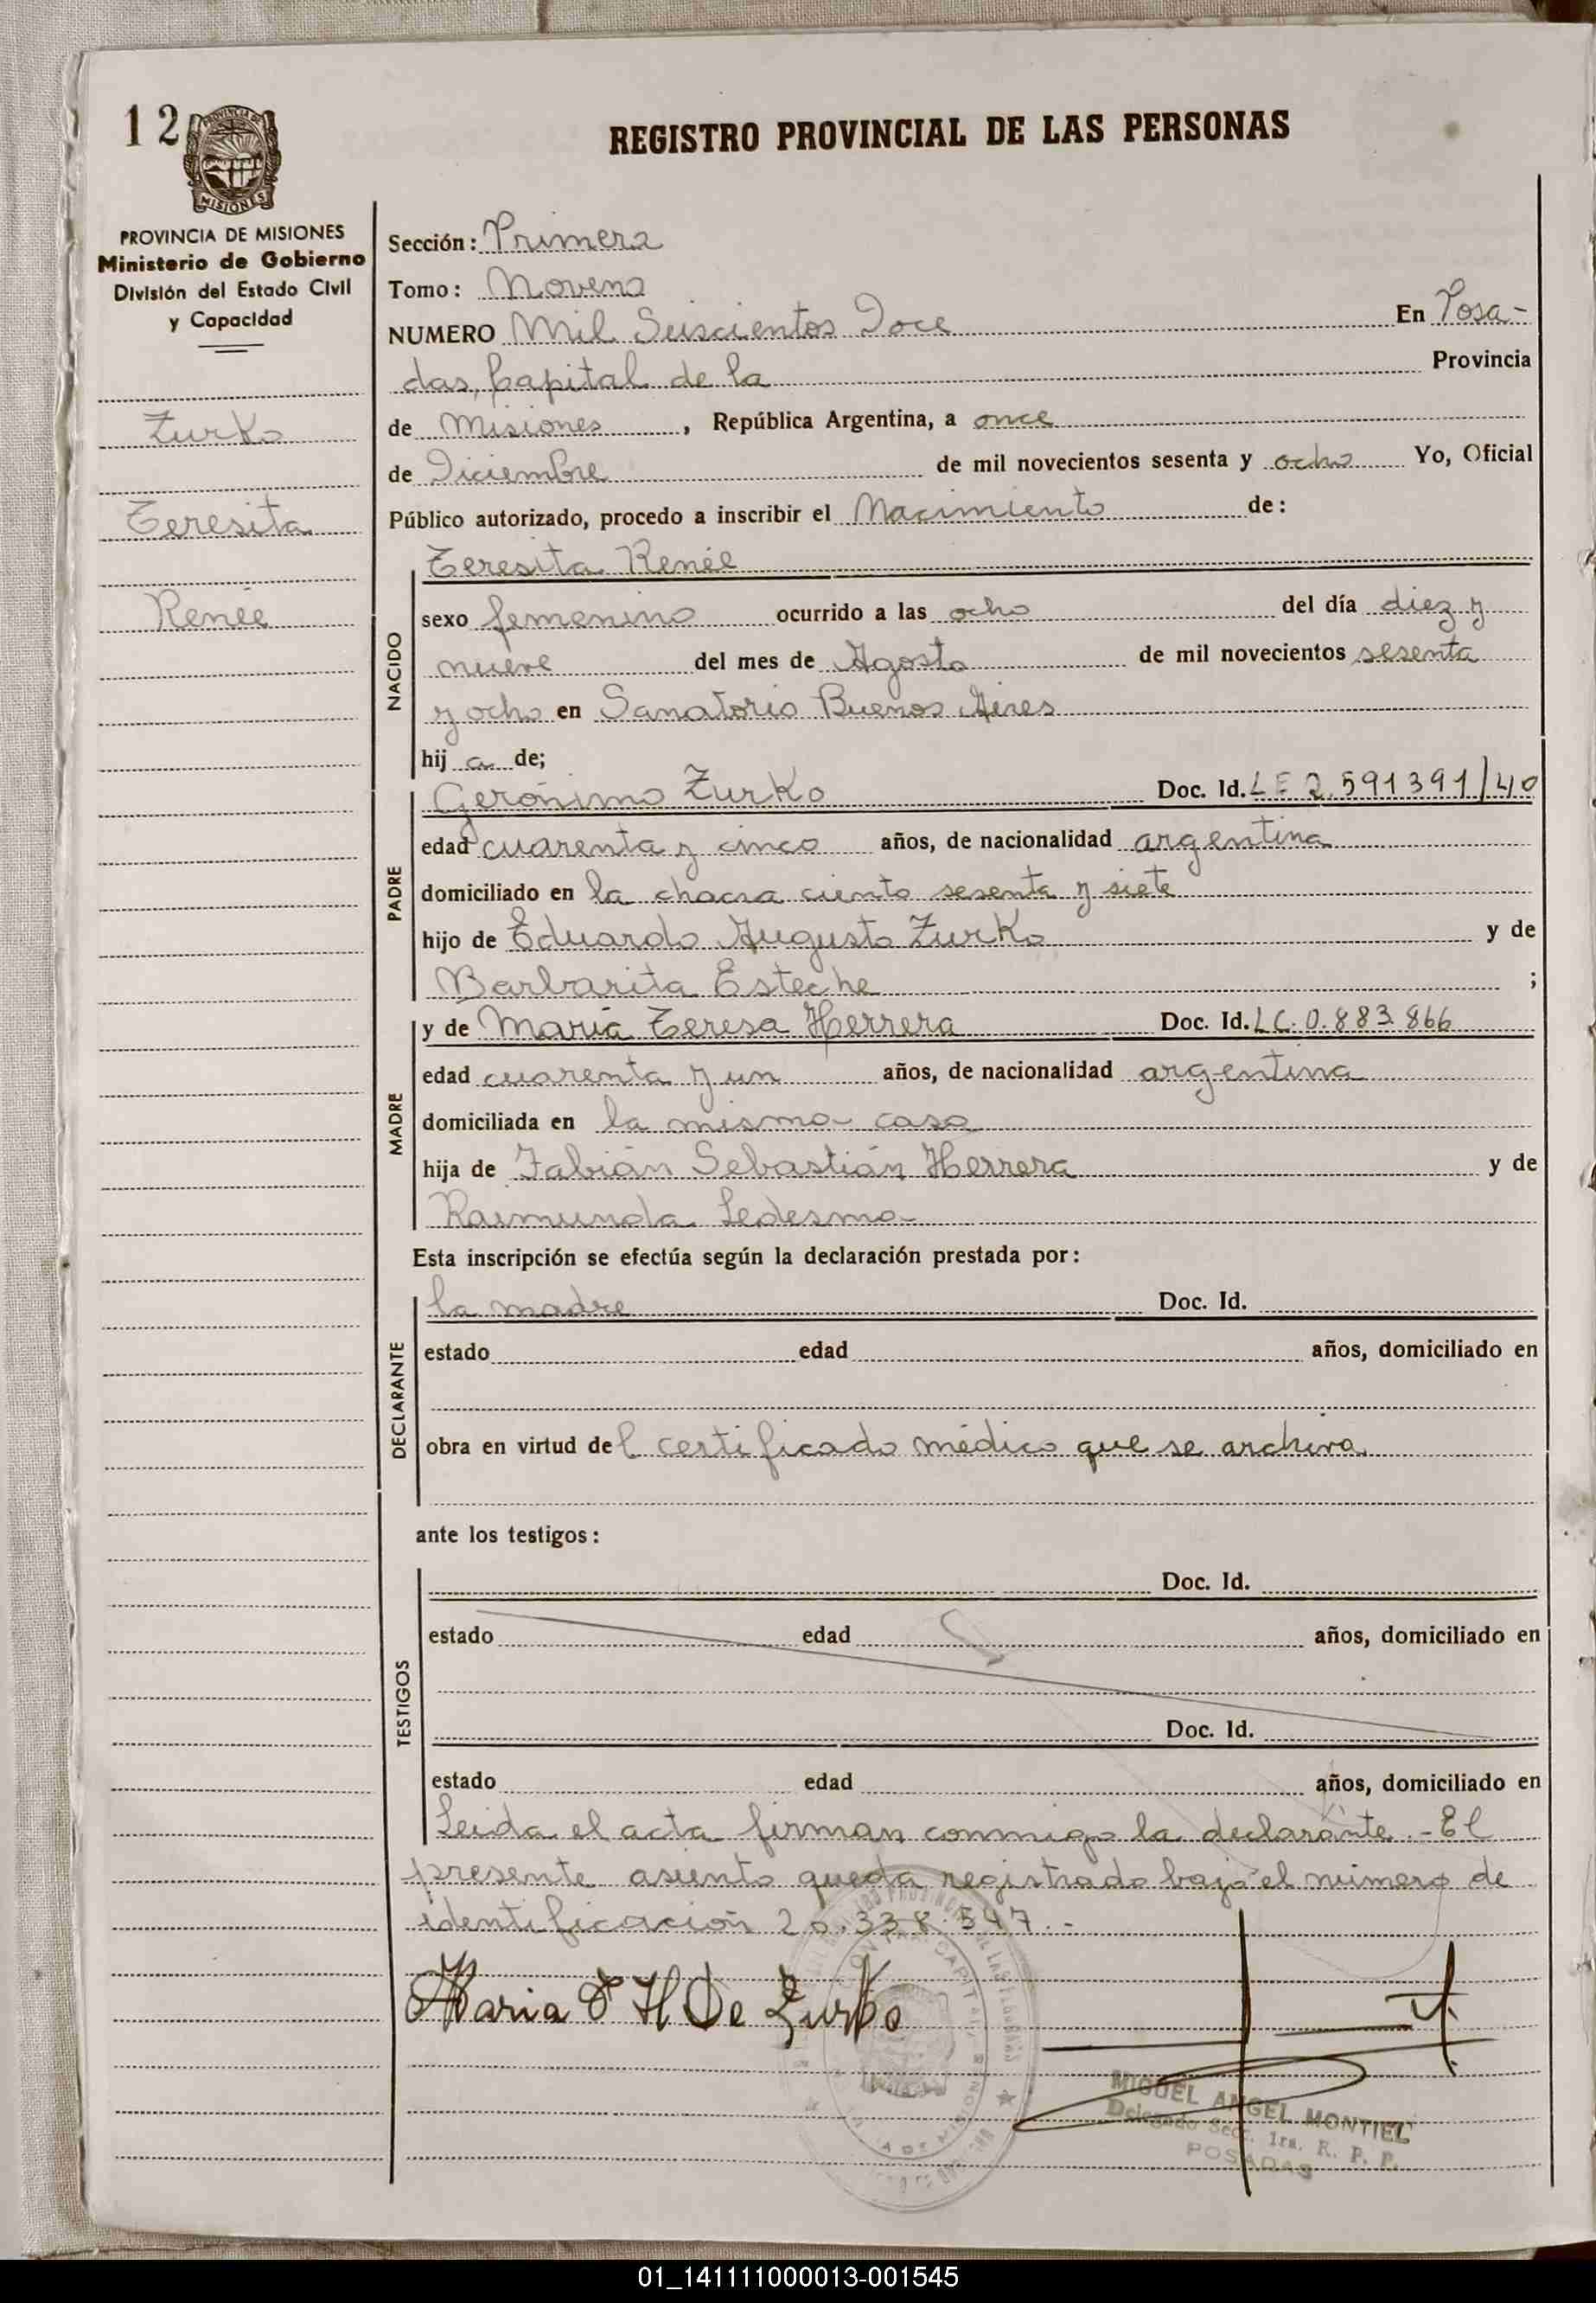 12
PROVINCIA DE MISIONES
Ministerio de Gobierno
División del Estado Civil
y Capacidad
Zurko
Teresita
Renée
REGISTRO PROVINCIAL DE LAS PERSONAS
Sección: Primera
Tomo: Noveno
NUMERO Mil Seiscientos Doce En Posa-
das, Capital de la Provincia
de Misiones, República Argentina, a once
de Diciembre de mil novecientos sesenta y ocho Yo, Oficial
Público autorizado, procedo a inscribir el Nacimiento de:
NACIDO
Teresita Renée
sexo femenino ocurrido a las ocho del día diez y
nueve del mes de Agosto de mil novecientos sesenta
y ocho en Sanatorio Buenos Aires
hij a de;
PADRE
Gerónimo Zurko Doc. Id. LE 2.591391/40
edad cuarenta y cinco años, de nacionalidad argentina
domiciliado en la chacra ciento sesenta y siete
hijo de Eduardo Augusto Zurko y de
Barbarita Esteche ;
MADRE
y de María Teresa Herrera Doc. Id. LC. 0.883.866
edad cuarenta y un años, de nacionalidad argentina
domiciliada en la misma casa
hija de Fabián Sebastián Herrera y de
Raimunda Ledesma
Esta inscripción se efectúa según la declaración prestada por:
DECLARANTE
la madre Doc. Id.
estado edad años, domiciliado en
obra en virtud del certificado médico que se archiva
ante los testigos:
TESTIGOS
Doc. Id.
estado edad años, domiciliado en
Doc. Id.
estado edad años, domiciliado en
Leida el acta firman conmigo la declarante.- El
presente asiento queda registrado bajo el número de
identificación 20.338.547.-
Maria T H De Zurko
MIGUEL ANGEL MONTIEL
Delegado Secc. 1ra. R. P. P.
POSADAS
01_141111000013-001545